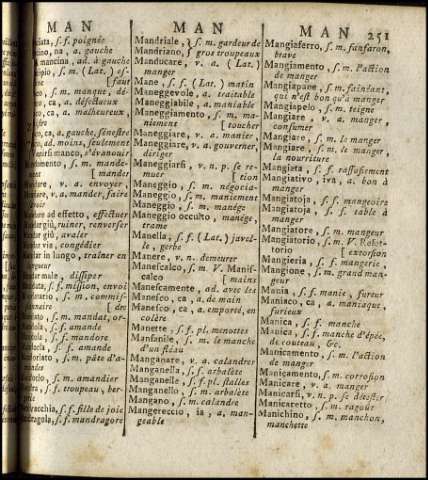 MAN
MAN
MAN 251
poignée
na, a. gauche
mancina, ad. à gauche
s. m. (Lat.) es-
[faut
s. m. manque, dé-
ca, a. défectueux
ca, a. malheureux
ca, a. gauche, senestre
ad. moins, seulement
s'évanouir
s. m. mande-
[mander
v. a. envoyer,
v. a. mander, faire
ad effetto, effectuer
giù, ruiner, renverser
giù, avaler
via, congédier
in lungo, traîner en
longueur
male, dissiper
s. f. mission, envoi
s. m. commis-
sionnaire [des
s. m. mandat, or-
s. f. amande
s. f. mandore
s. f. amande
s. m. pâte d'a-
mandes
s. m. amandier
s. f. troupeau, ber-
gerie
s. f. fille de joie
s. f. mandragore
Mandriale, } s. m. gardeur de
Mandriano, } gros troupeaux
Manducare, v. a. (Lat.)
manger
Mane, s. f. (Lat.) matin
Maneggevole, a. traitable
Maneggiabile, a. maniable
Maneggiamento, s. m. ma-
niement [toucher
Maneggiare, v. a. manier,
Maneggiare, v. a. gouverner,
diriger
Maneggiarsi, v. n. p. se re-
muer [tion
Maneggio, s. m. négocia-
Maneggio, s. m. maniement
Maneggio, s. m. manége
Maneggio occulto, manége,
trame
Manella, s. f. (Lat.) javel-
le, gerbe
Manere, v. n. demeurer
Manescalco, s. m. V. Manis-
calco [mains
Manescamente, ad. avec les
Manesco, ca, a. de main
Manesco, ca, a. emporté, en
colère
Manette, s. f. pl. menottes
Manfanile, s. m. le manche
d'un fléau
Manganare, v. a. calandrer
Manganella, s. f. arbalète
Manganelle, s. f. pl. stalles
Manganello, s. m. arbalète
Mangano, s. m. calandre
Mangereccio, ia, a. man-
geable
Mangiaferro, s. m. fanfaron,
brave
Mangiamento, s. m. l'action
de manger
Mangiapane, s. m. fainéant,
qui n'est bon qu'à manger
Mangiapelo, s. m. teigne
Mangiare, v. a. manger,
consumer
Mangiare, s. m. le manger
Mangiare, s. m. le manger,
la nourriture
Mangiata, s. f. rassasiement
Mangiativo, iva, a. bon à
manger
Mangiatoja, s. f. mangeoire
Mangiatoja, s. f. table à
manger
Mangiatore, s. m. mangeur
Mangiatorio, s. m. V. Refet-
torio [extorsion
Mangieria, s. f. mangerie,
Mangione, s. m. grand man-
geur
Mania, s. f. manie, fureur
Maniaco, ca, a. maniaque,
furieux
Manica, s. f. manche
Manica, s. f. manche d'épée,
de couteau, &c.
Manicamento, s. m. l'action
de manger
Manicamento, s. m. corrosion
Manicare, v. a. manger
Manicarsi, v. n. p. se détester
Manicaretto, s. m. ragoût
Manichino, s. m. manchon,
manchette